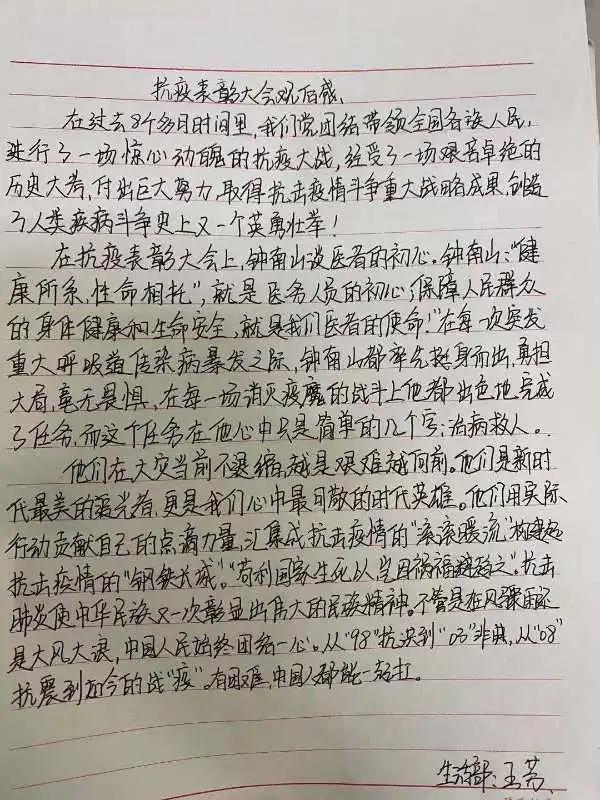 抗疫表彰大会观后感、
在过去8个多月时间里,我们党团结带领全国各族人民,
进行了一场惊心动魄的抗疫大战,经受了一场艰苦卓绝的
历史大考,付出巨大努力,取得抗击疫情斗争重大战略成果,创造
了人类疾病斗争史上又一个英勇壮举!
在抗疫表彰大会上,钟南山谈医者的初心。钟南山:"健
康所系,性命相托",就是医务人员的初心;保障人民群众
的身体健康和生命安全,就是我们医者的使命!"在每一次突发
重大呼吸道传染病暴发之际,钟南山都率先挺身而出,勇担
大局,毫无畏惧,在每一场消灭疫魔的战斗上他都出色地完成
了任务,而这个任务在他心中只是简单的几个字;治病救人。
他们在大灾当前不退缩,越是艰难越向前。他们是新时
代最美的追光者,更是我们心中最可敬的时代英雄。他们用实际
行动贡献自己的点滴力量,汇集成抗击疫情的"滚滚暖流"构建起
抗击疫情的"钢铁长城"。"苟利国家生死以岂因祸福避趋之"。抗击
肺炎使中华民族又一次彰显出伟大的民族精神。不管是在风骤雨还
是大风大浪,中国人民始终团结一心。从"98"抗洪到"03"非典,从"08"
抗震到如今的战"疫"。有困难,中国人都能一起扛。
生活部:王芳、